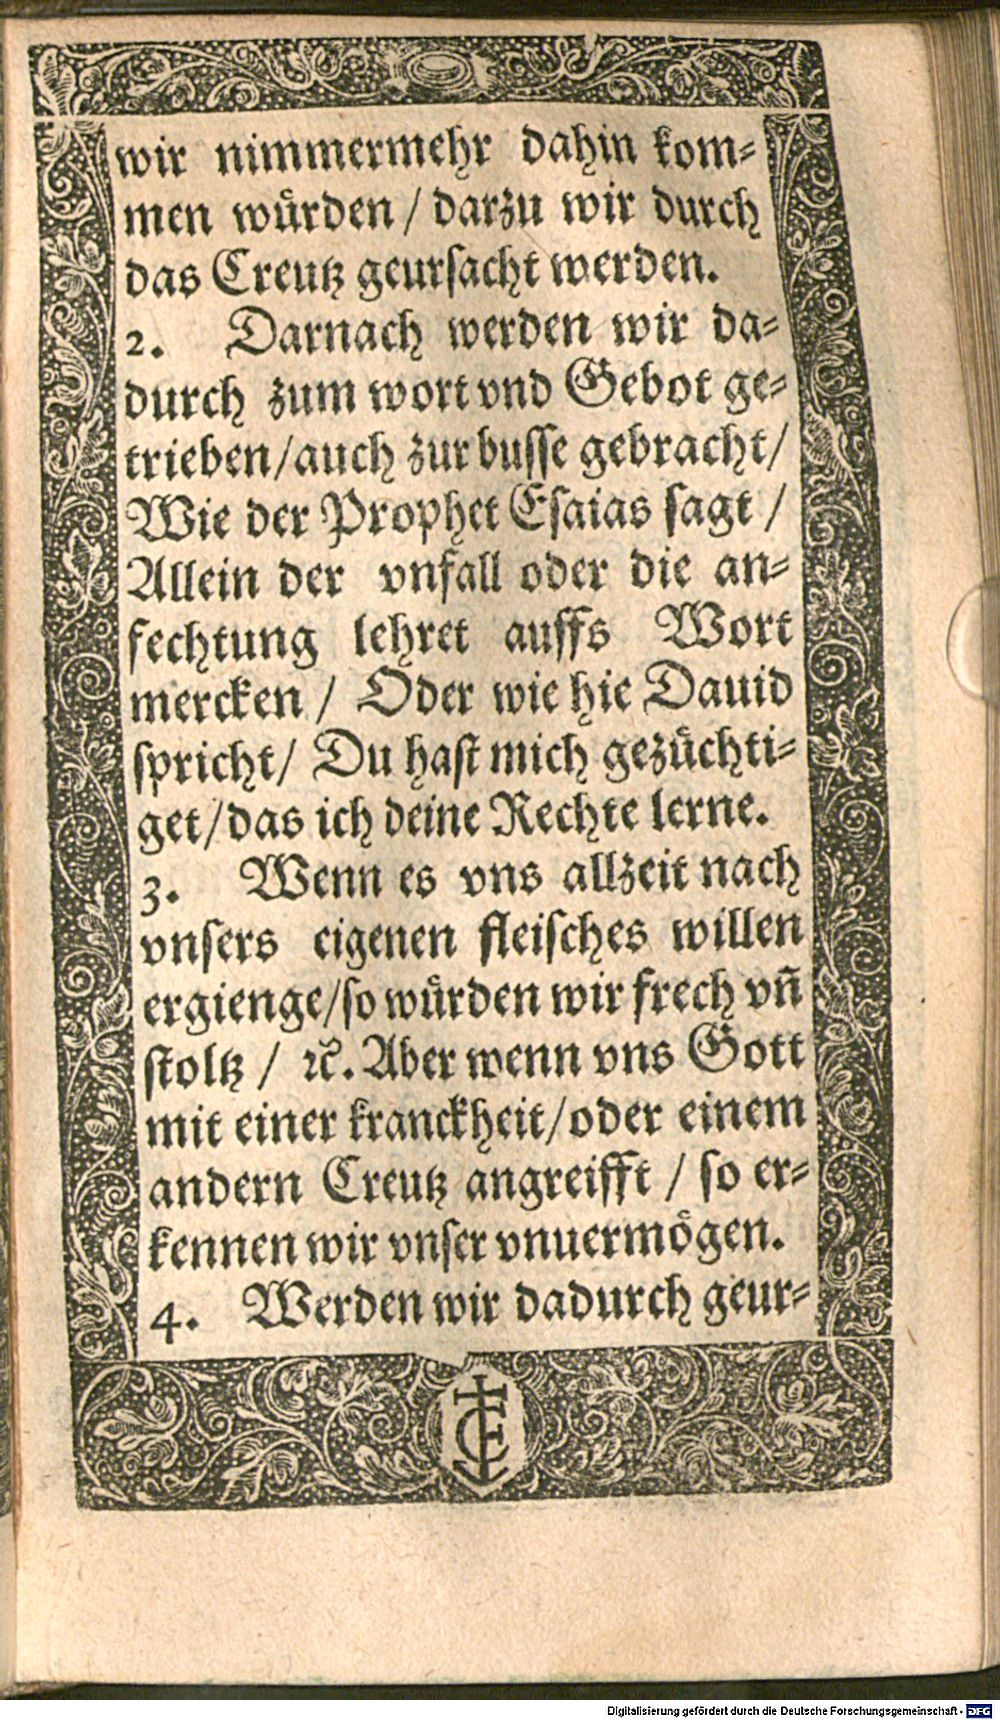 wir nimmermehr dahin kom⸗
men wuͤrden / darzu wir durch
das Creutz geursacht werden.
2. Darnach werden wir da⸗
durch zum wort vnd Gebot ge⸗
trieben / auch zur busse gebracht /
Wie der Prophet Esaias sagt /
Allein der vnfall oder die an⸗
fechtung lehret auffs Wort
mercken / Oder wie hie Dauid
spricht / Du hast mich gezuͤchti⸗
get / das ich deine Rechte lerne.
3. Wenn es vns allzeit nach
vnsers eigenen fleisches willen
ergienge / so wuͤrden wir frech vñ
stoltz / ꝛc. Aber wenn vns Gott
mit einer kranckheit / oder einem
andern Creutz angreifft / so er⸗
kennen wir vnser vnuermoͤgen.
4. Werden wir dadurch geur⸗
Digitalisierung gefördert durch die Deutsche Forschungsgemeinschaft - DFG